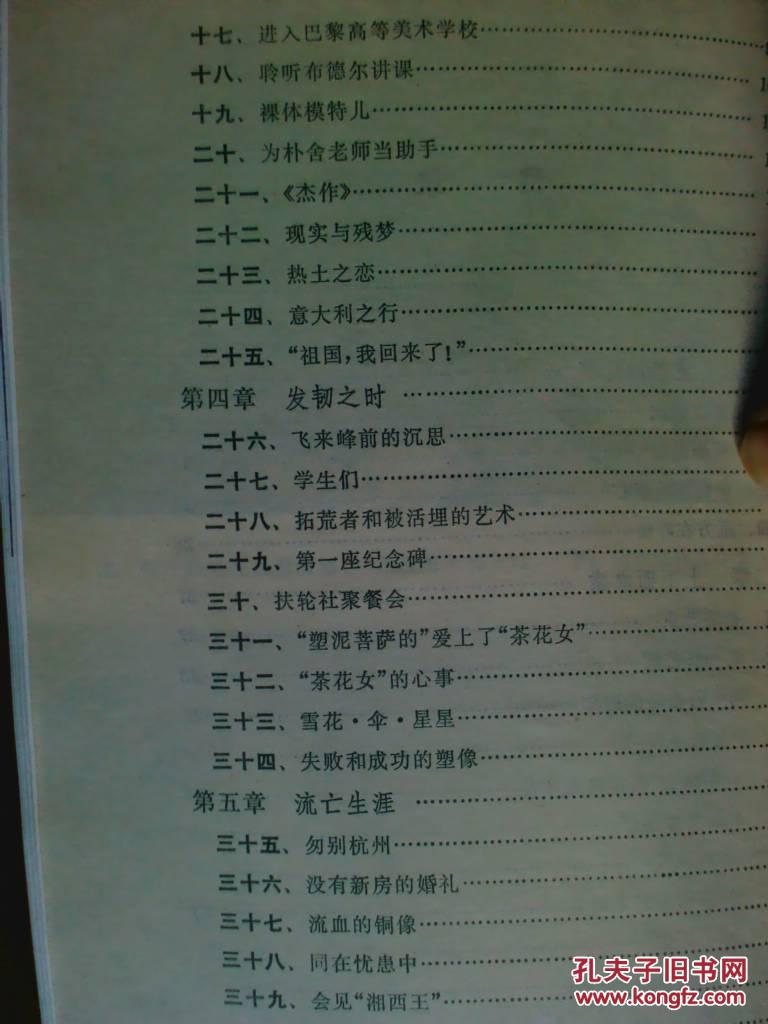 十七、进入巴黎高等美术学校
十八、聆听布德尔讲课
十九、裸体模特儿
二十、为朴舍老师当助手
二十一、《杰作》
二十二、现实与残梦
二十三、热土之恋
二十四、意大利之行
二十五、“祖国，我回来了！”
第四章 发轫之时
二十六、飞来峰前的沉思
二十七、学生们
二十八、拓荒者和被活埋的艺术
二十九、第一座纪念碑
三十、扶轮社聚餐会
三十一、“塑泥菩萨的”爱上了“茶花女”
三十二、“茶花女”的心事
三十三、雪花·伞·星星
三十四、失败和成功的塑像
第五章 流亡生涯
三十五、匆别杭州
三十六、没有新房的婚礼
三十七、流血的铜像
三十八、同在忧患中
三十九、会见“湘西王”
孔夫子旧书网
www.kongfz.com